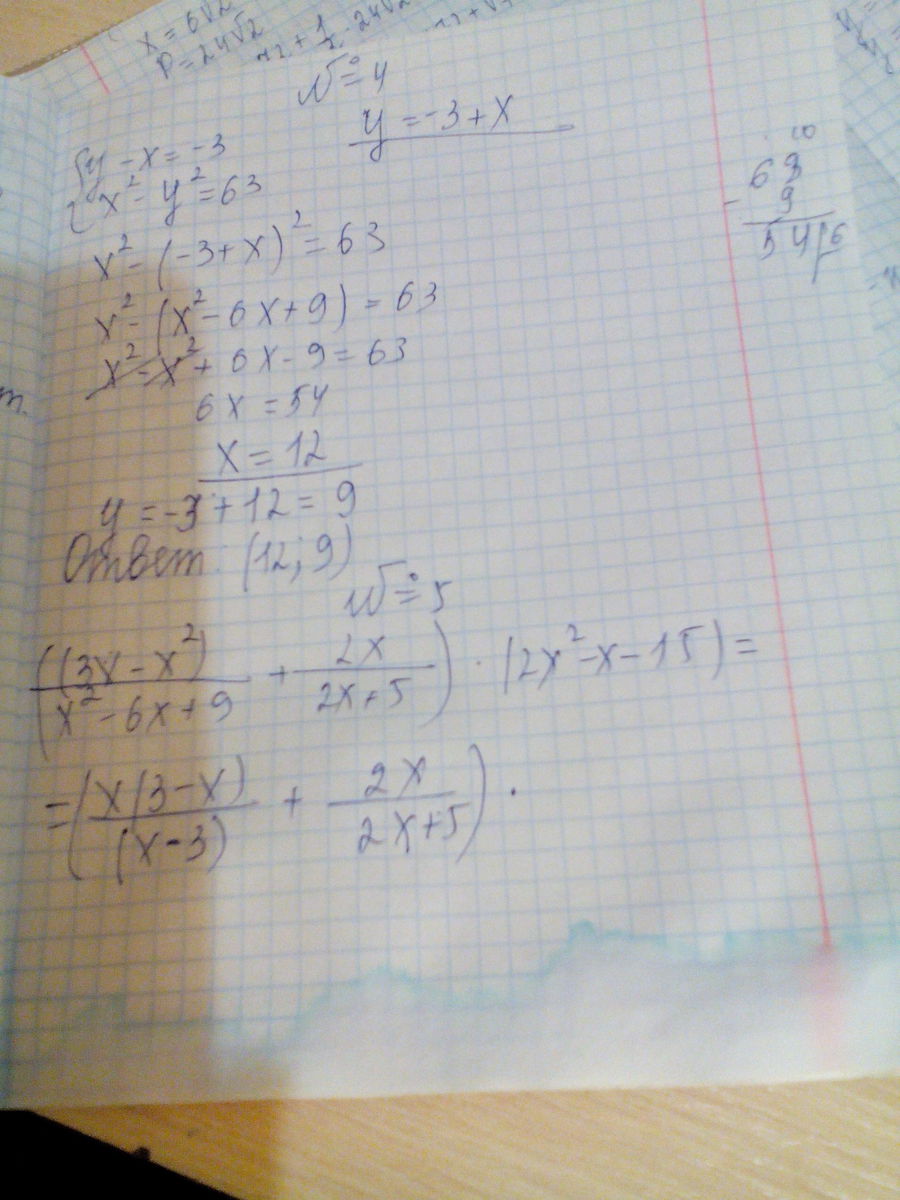 x = 6√2
P = 24√2
№ 4
{y - x = -3
x² - y² = 63
y = -3 + x
x² - (-3 + x)² = 63
x² - (x² - 6x + 9) = 63
x² - x² + 6x - 9 = 63
6x = 54
x = 12
y = -3 + 12 = 9
Ответ: (12; 9)
№ 5
((3x - x²)/(x² - 6x + 9) + 2x/(2x + 5)) · (2x² - x - 15) =
= (x(3 - x)/(x - 3) + 2x/(2x + 5)) ·
10
63
- 9
54 6